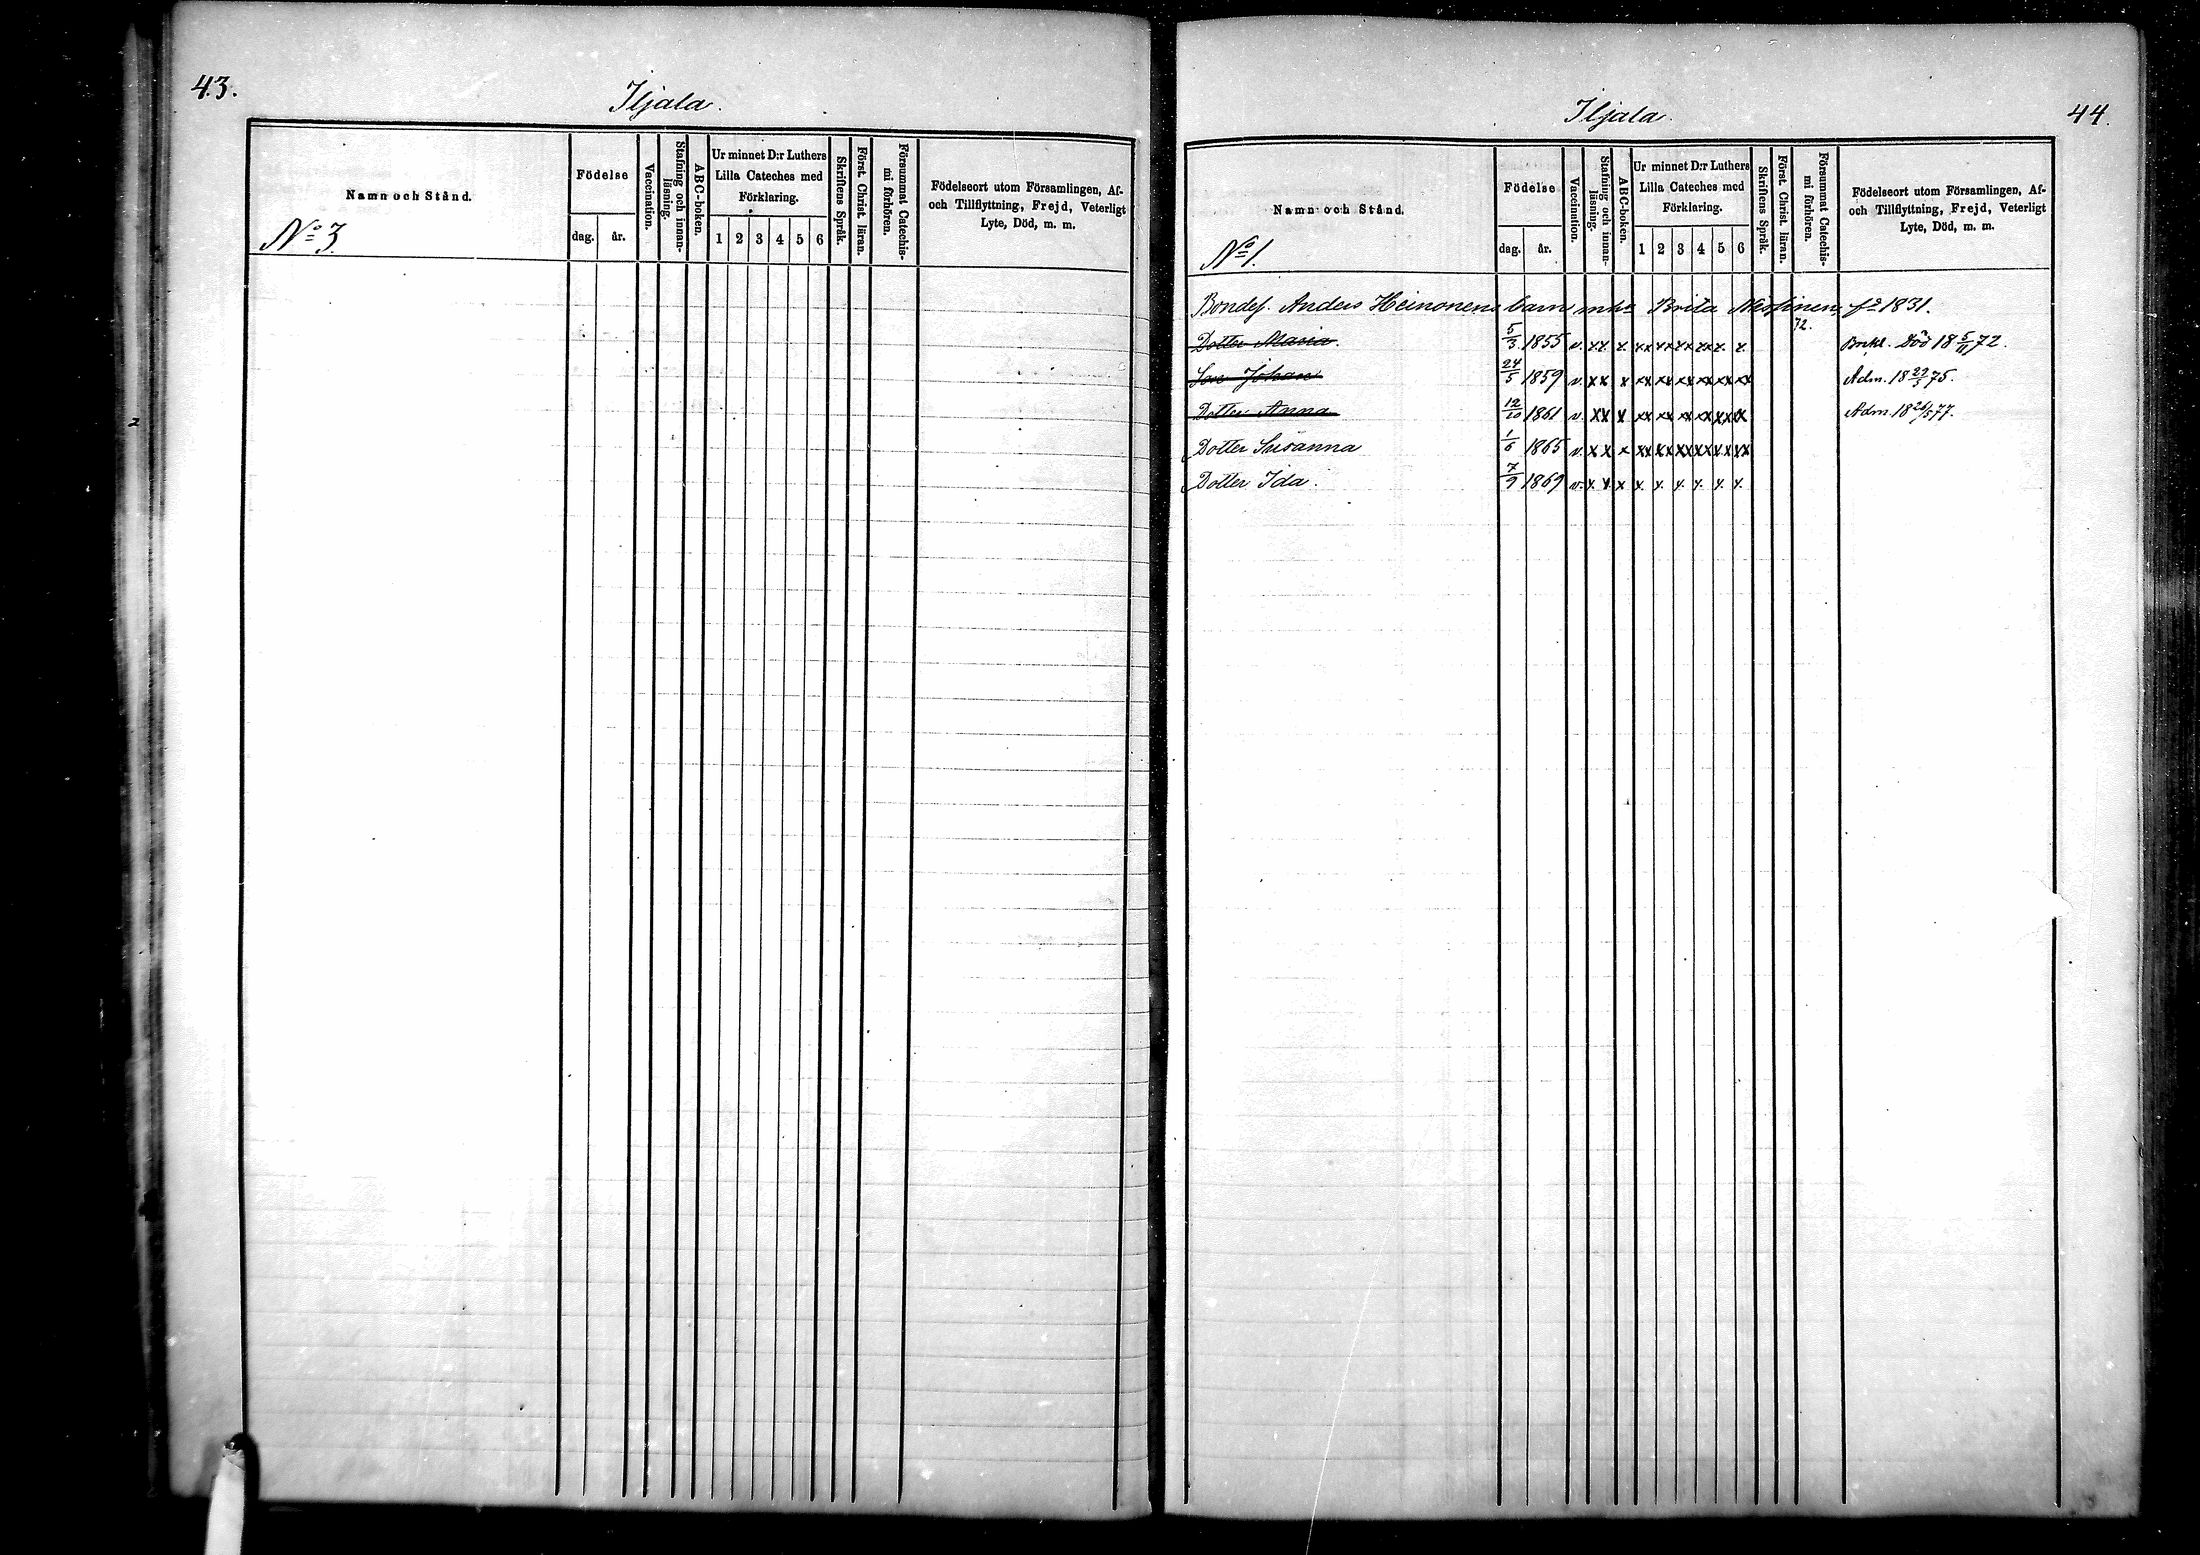 43.
Iljala.
Namn och Stånd.
Födelse
Vaccination.
Stafning och innan-
läsning.
ABC-boken.
Ur minnet D:r Luthers
Lilla Cateches med
Förklaring.
Skriftens Språk.
Först. Christ. läran.
Försummat Catechis-
mi förhören.
Födelseort utom Församlingen, Af-
och Tillflyttning, Frejd, Veterligt
Lyte, Död, m. m.
dag. år. 1 2 3 4 5 6
No 3.
Iljala.
44.
Namn och Stånd.
Födelse
Vaccination.
Stafning och innan-
läsning.
ABC-boken.
Ur minnet D:r Luthers
Lilla Cateches med
Förklaring.
Skriftens Språk.
Först. Christ. läran.
Försummat Catechis-
mi förhören.
Födelseort utom Församlingen, Af-
och Tillflyttning, Frejd, Veterligt
Lyte, Död, m. m.
dag. år. 1 2 3 4 5 6
No 1.
Anders Heinonens barn Brita fd 1831.
Dotter Maria. 5/3 1855 v. 72. Död 18 5/11 72.
Son Johan 24/5 1859 v. Adm. 18 22/5 75.
Dotter Anna 12/10 1861 v. Adm. 18 26/5 77.
Dotter Susanna 1/6 1865 v.
Dotter Ida. 7/9 1869 v.